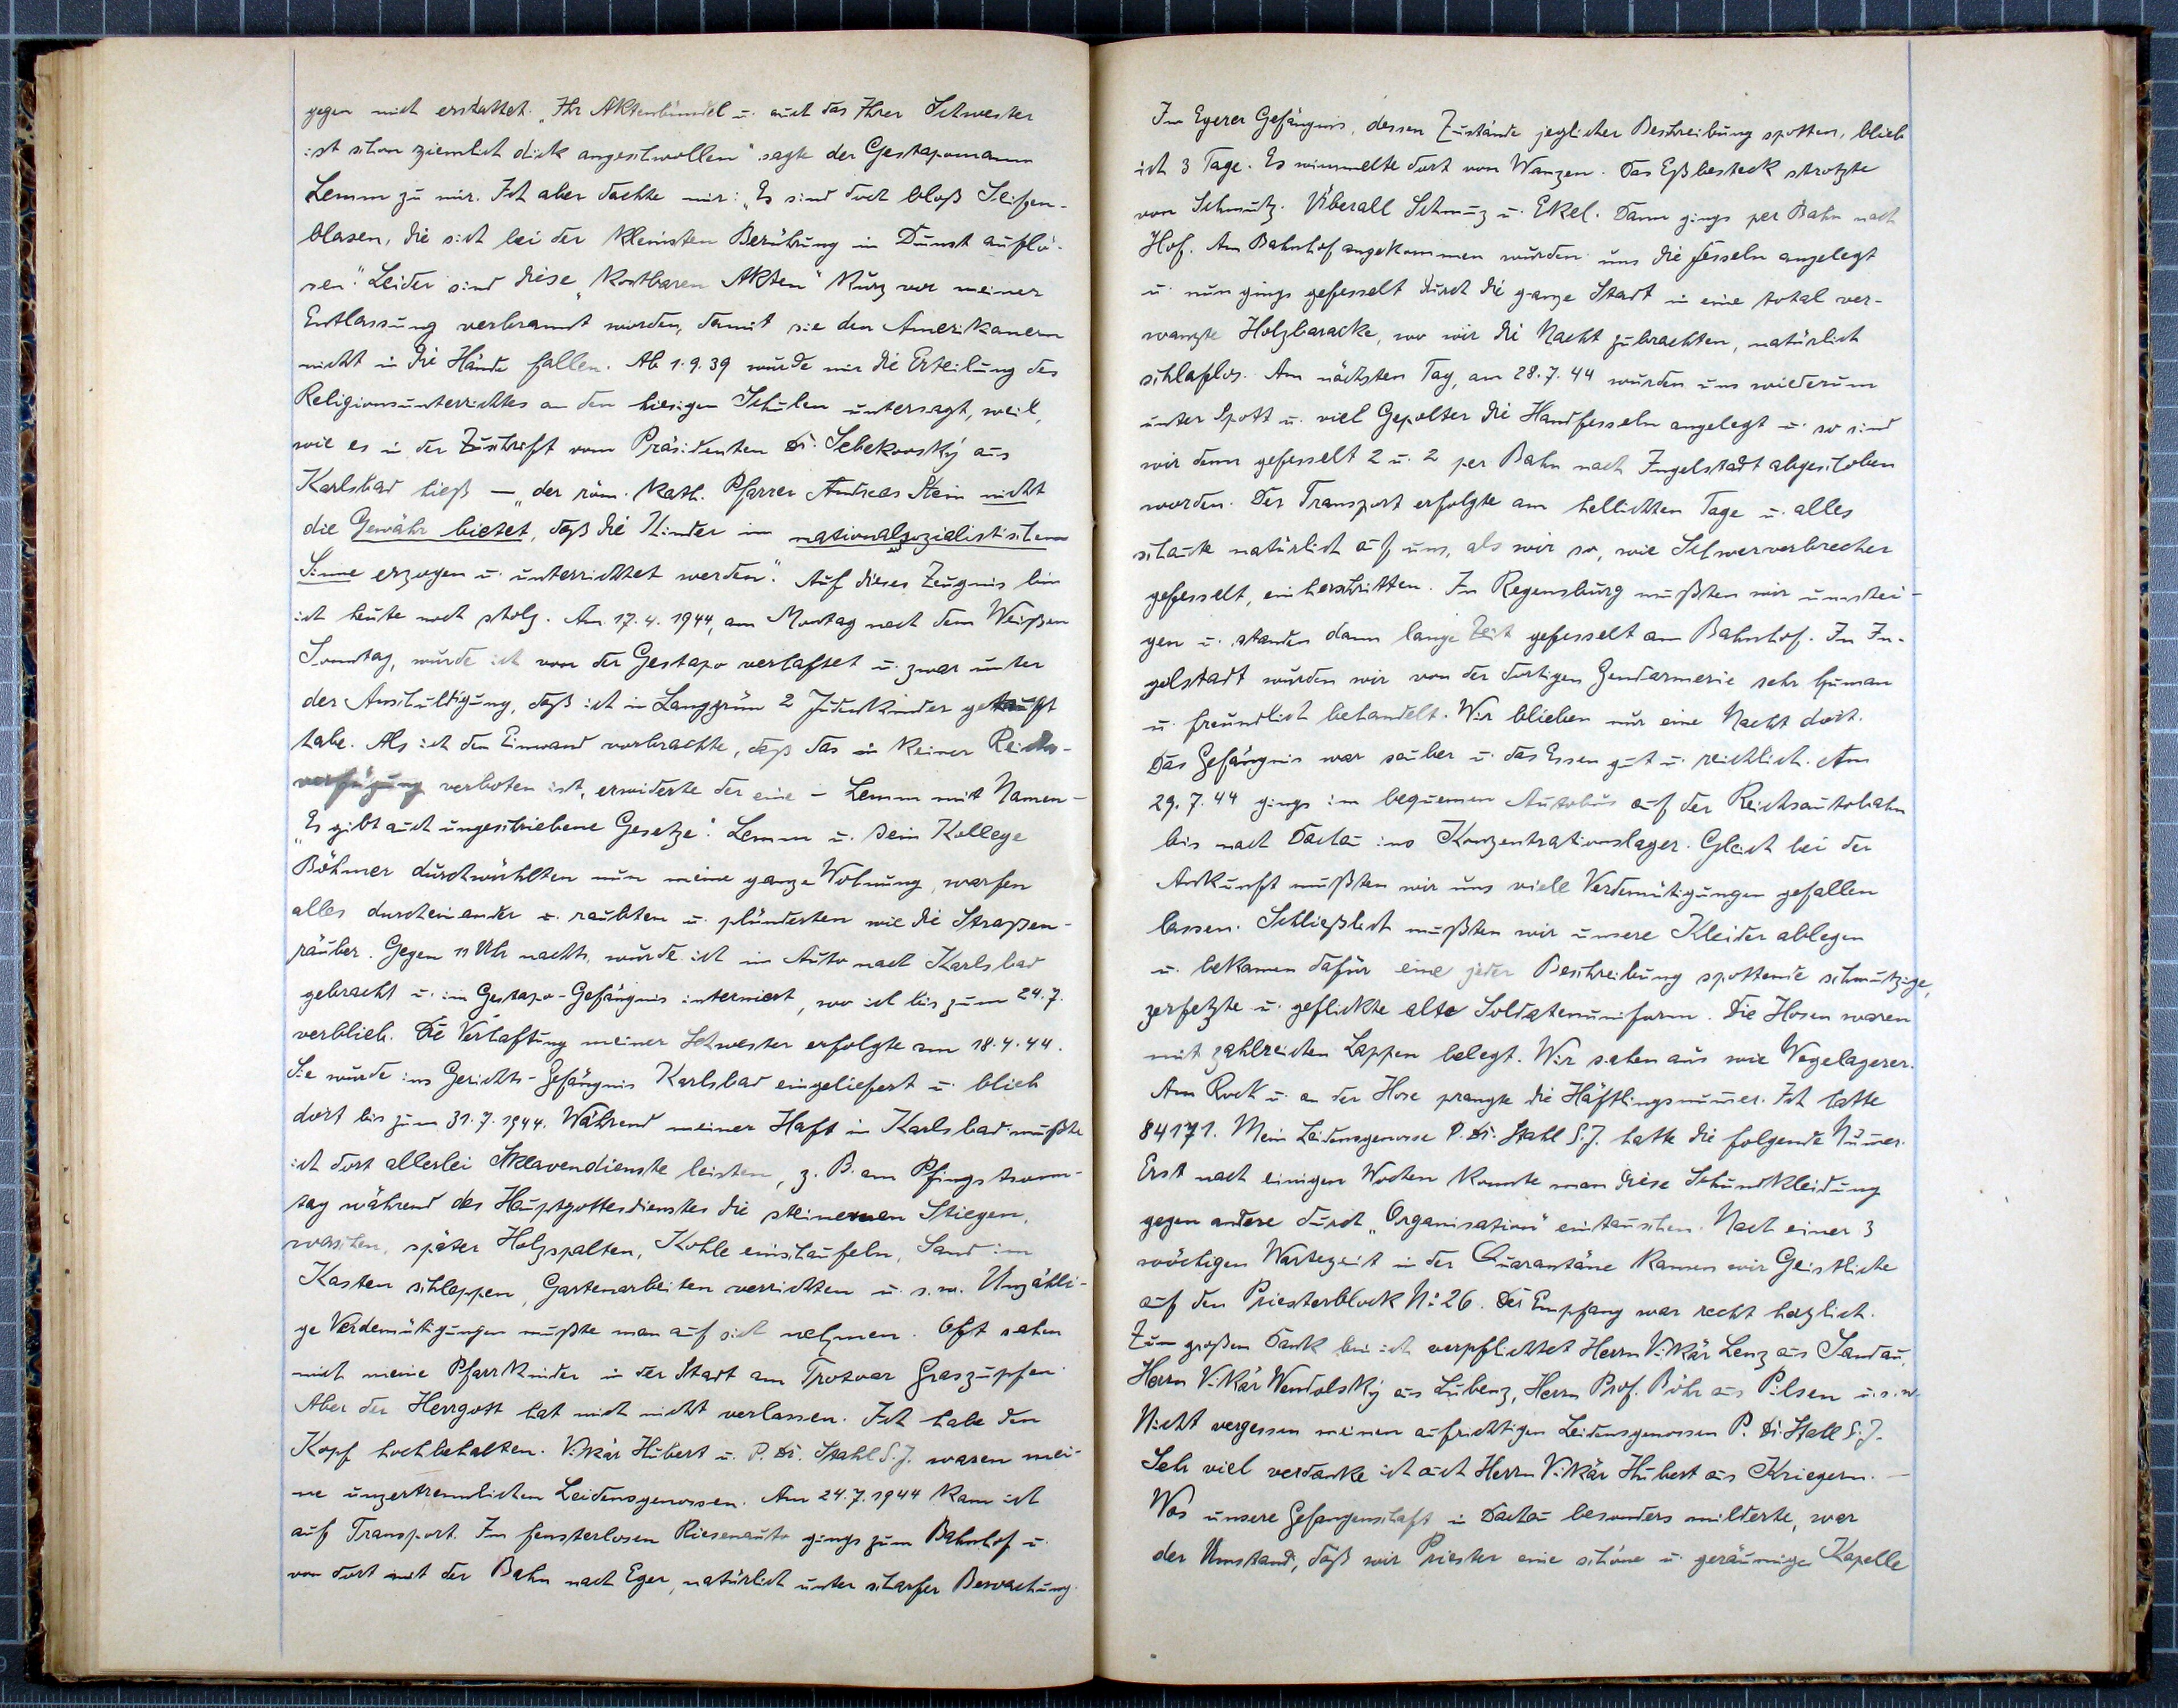 gegen mich erstattet. „Ihr Aktenbündel u. auch das Ihrer Schwester
ist schon ziemlich dick angeschwollen" sagte der Gestapomann
Lemm zu mir. Ich aber dachte mir: „Es sind doch bloß Seifen-
blasen, die sich bei der kleinsten Berührung in Dunst auflö-
sen." Leider sind diese „kostbaren Akten" kurz vor meiner
Entlassung verbrannt worden, damit sie den Amerikanern
nicht in die Hände fallen. Ab 1.9.39 wurde mir die Erteilung des
Religionsunterrichtes an den hiesigen Schulen untersagt, weil,
wie es in der Zuschrift vom Präsidenten Dr. Sebekovský aus
Karlsbad hieß — „der röm. kath. Pfarrer Andreas Stein nicht
die Gewähr bietet, daß die Kinder im nationalsozialistischen
Sinne erzogen u. unterrichtet werden". Auf dieses Zeugnis bin
ich heute noch stolz. Am 17.4.1944, am Montag nach dem Weißen
Sonntag, wurde ich von der Gestapo verhaftet u. zwar unter
der Anschuldigung, daß ich in Langgrün 2 Judenkinder getauft
habe. Als ich den Einwand vorbrachte, daß das in keiner Reichs-
verfügung verboten ist, erwiderte der eine – Lemm mit Namen –
„Es gibt auch ungeschriebene Gesetze". Lemm u. sein Kollege
Böhmer durchwühlten nun meine ganze Wohnung, warfen
alles durcheinander u. raubten u. plünderten wie die Straßen-
räuber. Gegen 11 Uhr nachts, wurde ich im Auto nach Karlsbad
gebracht u. im Gestapo-Gefängnis interniert, wo ich bis zum 24.7.
verblieb. Die Verhaftung meiner Schwester erfolgte am 18.4.44.
Sie wurde ins Gerichts-Gefängnis Karlsbad eingeliefert u. blieb
dort bis zum 31.7.1944. Während meiner Haft in Karlsbad mußte
ich dort allerlei Sklavendienste leisten, z. B. am Pfingstsonn-
tag während des Hauptgottesdienstes die steinernen Stiegen,
waschen, später Holzspalten, Kohle einschaufeln, Sand im
Kasten schleppen, Gartenarbeiten verrichten u. s. w. Unzähli-
ge Verdemütigungen mußte man auf sich nehmen. Oft sahen
mich meine Pfarrkinder in der Stadt am Trotoar Graszupfen.
Aber der Herrgott hat mich nicht verlassen. Ich habe den
Kopf hochbehalten. Vikär Hubert u. P. Dr. Stahl S.J. waren mei-
ne unzertrennlichen Leidensgenossen. Am 24.7.1944 kam ich
auf Transport. Im fensterlosen Riesenauto gings zum Bahnhof u.
von dort mit der Bahn nach Eger, natürlich unter scharfer Bewachung.
Im Egerer Gefängnis, dessen Zustände jeglicher Beschreibung spotten, blieb
ich 3 Tage. Es wimmelte dort von Wanzen. Das Eßbesteck strotzte
von Schmutz. Überall Schmuz u. Ekel. Dann gings per Bahn nach
Hof. Am Bahnhof angekommen wurden uns die Fesseln angelegt
u. nun gings gefesselt durch die ganze Stadt in eine total ver-
wanzte Holzbaracke, wo wir die Nacht zubrachten, natürlich
schlaflos. Am nächsten Tag, am 28.7.44 wurden uns wiederum
unter Spott u. viel Gepolter die Handfesseln angelegt u. so sind
wir denn gefesselt 2 u. 2 per Bahn nach Ingolstadt abgeschoben
worden. Der Transport erfolgte am hellichten Tage u. alles
schaute natürlich auf uns, als wir so, wie Schwerverbrecher
gefesselt, einherschritten. In Regensburg mußten wir umstei-
gen u. standen dann lange Zeit gefesselt am Bahnhof. In In-
golstadt wurden wir von der dortigen Gendarmerie sehr human
u. freundlich behandelt. Wir blieben nur eine Nacht dort.
Das Gefängnis war sauber u. das Essen gut u. reichlich. Am
29.7.44 gings im bequemen Autobus auf der Reichsautobahn
bis nach Dachau ins Konzentrationslager. Gleich bei der
Ankunft mußten wir uns viele Verdemütigungen gefallen
lassen. Schließlich mußten wir unsere Kleider ablegen
u. bekamen dafür eine jeder Beschreibung spottende schmutzige,
zerfetzte u. geflickte alte Soldatenuniform. Die Hosen waren
mit zahlreichen Lappen belegt. Wir sahen aus wie Wegelagerer.
Am Rock u. an der Hose prangte die Häftlingsnummer. Ich hatte
84171. Mein Leidensgenosse P. Dr. Stahl S.J. hatte die folgende Numer.
Erst nach einigen Wochen konnte man diese Schundkleidung
gegen andere durch „Organisation" eintauschen. Nach einer 3
wöchigen Wartezeit in der Quarantäne kamen wir Geistliche
auf den Priesterblock No 26. Der Empfang war recht herzlich.
Zum großen Dank bin ich verpflichtet Herrn Vikär Lenz aus Sandau,
Herrn Vikär Wendolský aus Lubenz, Herrn Prof. Böhr aus Pilsen u. s. w.
Nicht vergessen meinen aufrichtigen Leidensgenossen P. Dr. Stahl S.J.
Sehr viel verdanke ich auch Herrn Vikär Hubert aus Kriegern. —
Was unsere Gefangenschaft in Dachau besonders milderte, war
der Umstand, daß wir Priester eine schöne u. geräumige Kapelle